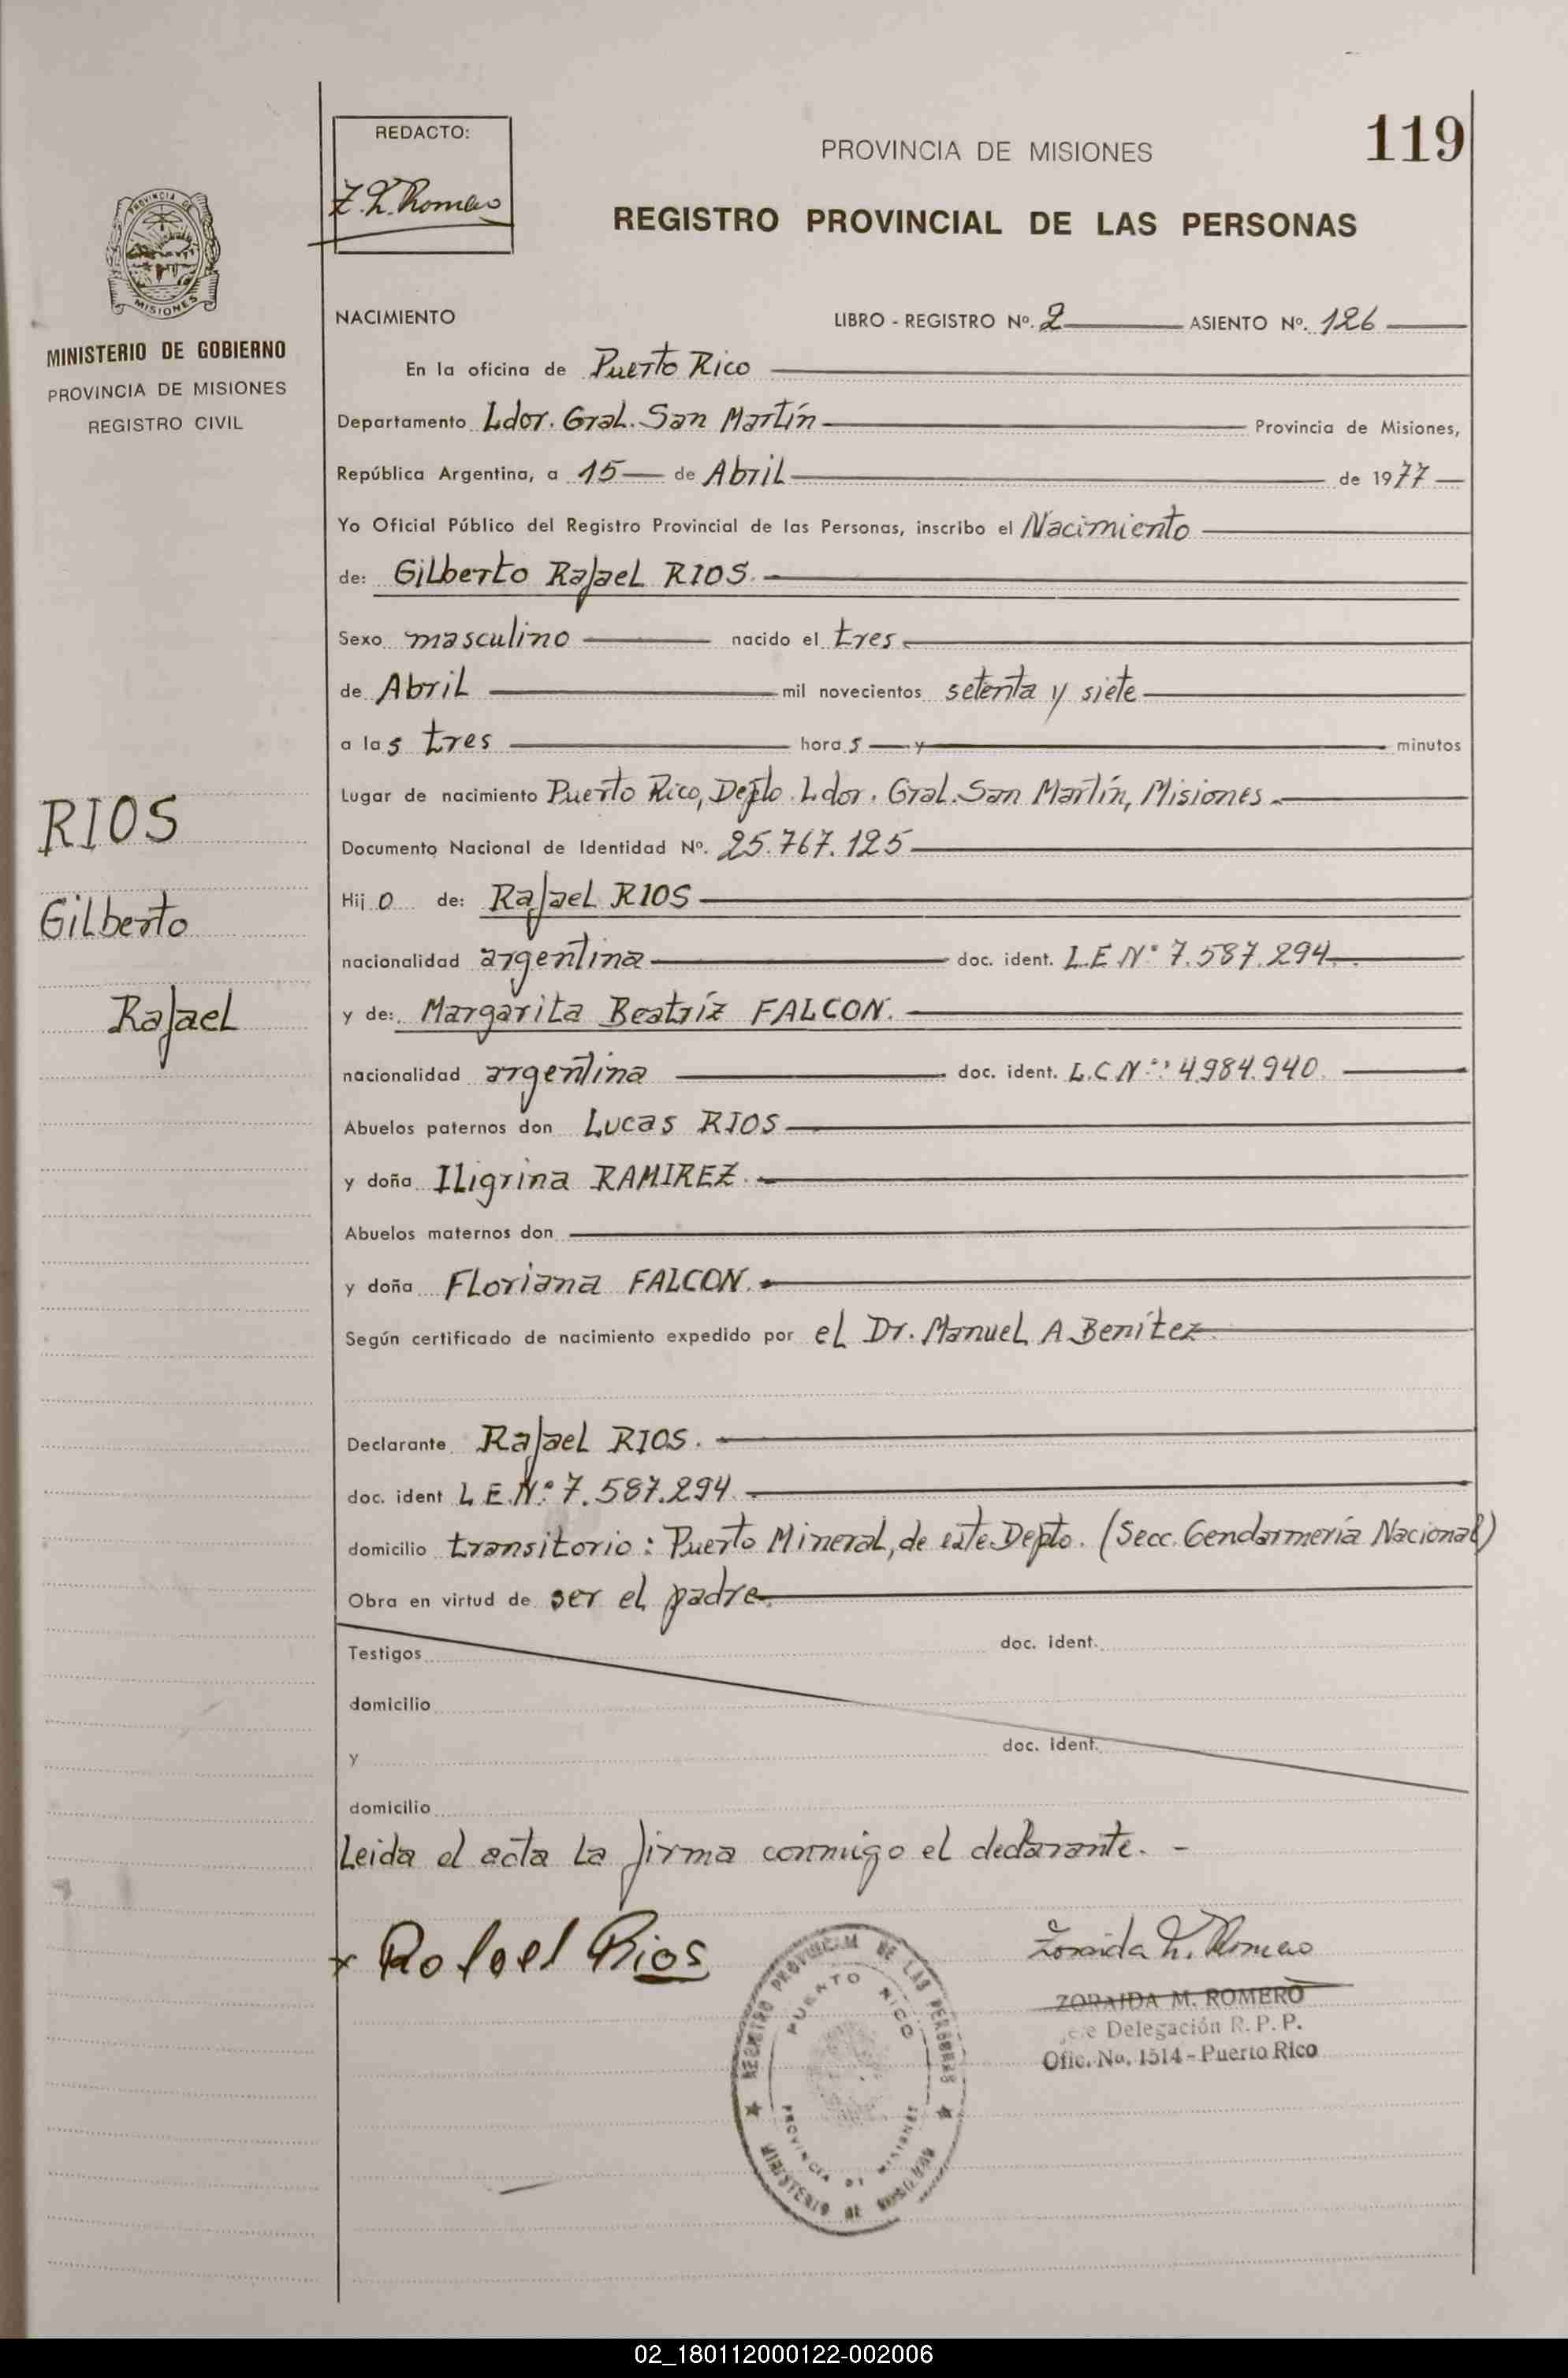 119
REDACTO:
Z. M. Romero
PROVINCIA DE MISIONES
REGISTRO PROVINCIAL DE LAS PERSONAS
PROVINCIA DE
MISIONES
MINISTERIO DE GOBIERNO
PROVINCIA DE MISIONES
REGISTRO CIVIL
RIOS
Gilberto
Rafael
NACIMIENTO LIBRO - REGISTRO Nº. 2 ASIENTO Nº. 126
En la oficina de Puerto Rico
Departamento Ldor. Gral. San Martín Provincia de Misiones,
República Argentina, a 15 de Abril de 1977
Yo Oficial Público del Registro Provincial de las Personas, inscribo el Nacimiento
de: Gilberto Rafael RIOS.
Sexo masculino nacido el tres
de Abril mil novecientos setenta y siete
a las tres horas y minutos
Lugar de nacimiento Puerto Rico, Depto. Ldor. Gral. San Martín, Misiones.
Documento Nacional de Identidad Nº. 25.767.125
Hijo de: Rafael RIOS
nacionalidad argentina doc. ident. L.E Nº 7.587.294.
y de: Margarita Beatríz FALCON.
nacionalidad argentina doc. ident. L.C Nº: 4.984.940.
Abuelos paternos don Lucas RIOS
y doña Iligrina RAMIREZ.
Abuelos maternos don
y doña Floriana FALCON.
Según certificado de nacimiento expedido por el Dr. Manuel A. Benítez.
Declarante Rafael RIOS.
doc. ident L.E.Nº: 7.587.294.
domicilio transitorio: Puerto Mineral, de este Depto. (Secc. Gendarmería Nacional)
Obra en virtud de ser el padre.
Testigos doc. ident.
domicilio
y doc. ident.
domicilio
Leida el acta la firma conmigo el declarante. -
x Rafael Rios
Zoraida M. Romero
ZORAIDA M. ROMERO
Jefe Delegación R. P. P.
Ofic. No. 1514 - Puerto Rico
REGISTRO PROVINCIAL DE LAS PERSONAS
PUERTO RICO
PROVINCIA DE MISIONES
MINISTERIO DE GOBIERNO
02_180112000122-002006